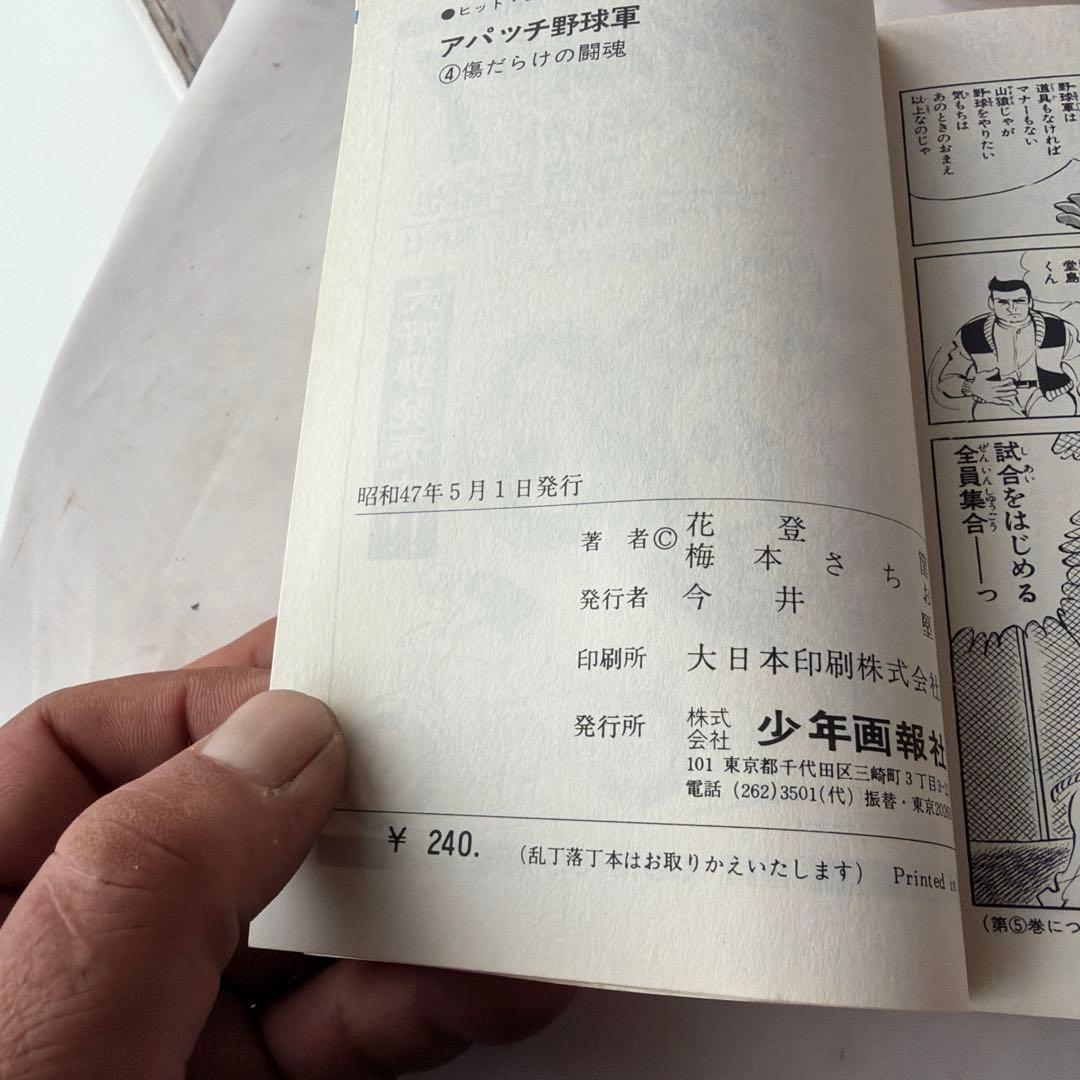 ●ヒット
アパッチ野球軍
④傷だらけの闘魂
昭和47年5月1日発行
著 者© 花 登 筺
梅 本 さ ち お
発行者 今 井 堅
印刷所 大日本印刷株式会社
発行所 株式会社 少年画報社
101 東京都千代田区三崎町3丁目3
電話 (262)3501(代) 振替・東京
¥ 240.
(乱丁落丁本はお取りかえいたします) Printed in
野球軍は
道具もなければ
マナーもない
山猿じゃが
野球をやりたい
気もちは
あのときのおまえ
以上なのじゃ
堂島
くん
試合をはじめる
全員集合――っ
(第⑤巻につ